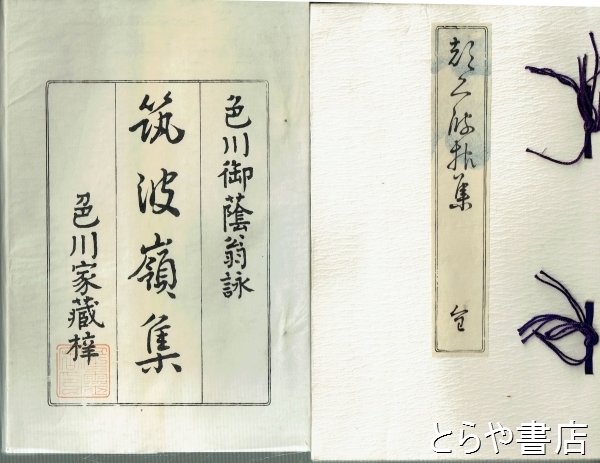 色川御蔭翁詠
筑波嶺集
色川家藏梓
集
全
とらや書店